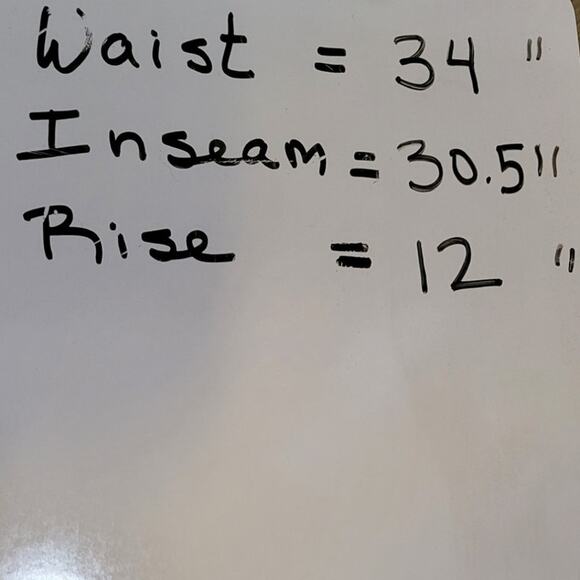 Waist = 34 "
Inseam = 30.5"
Rise = 12 "